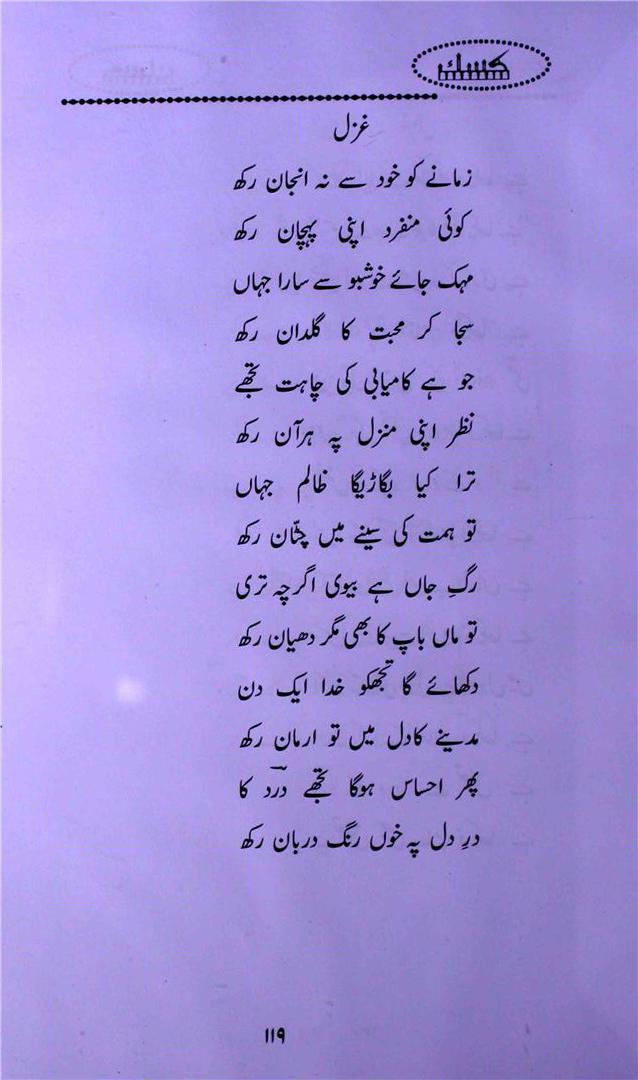 کسک
غزل
زمانے کو خود سے نہ انجان رکھ
کوئی منفرد اپنی پہچان رکھ
مہک جائے خوشبو سے سارا جہاں
سجا کر محبت کا گلدان رکھ
جو ہے کامیابی کی چاہت تجھے
نظر اپنی منزل پہ ہرآن رکھ
ترا کیا بگاڑیگا ظالم جہاں
تو ہمت کی سینے میں چٹّان رکھ
رگِ جاں ہے بیوی اگرچہ تری
تو ماں باپ کا بھی مگر دھیان رکھ
دکھائے گا تجھکو خدا ایک دن
مدینے کادل میں تو ارمان رکھ
پھر احساس ہوگا تجھے درد کا
درِ دل پہ خوں رنگ دربان رکھ
۱۱۹